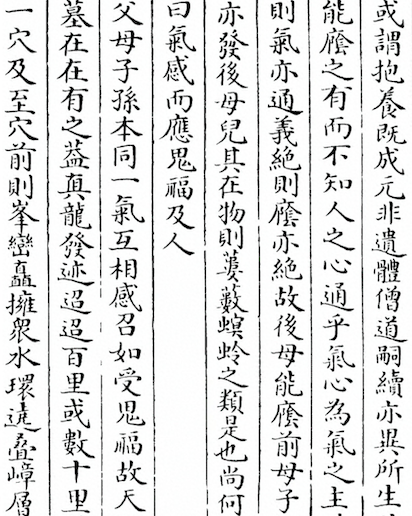 或謂抱養既成元非遺體僧道嗣續亦異所生
能廕之有而不知人之心通乎氣心為氣之主
則氣亦通義絕則廕亦絕故後母能廕前母子
亦發後母兒其在物則蔞藪螟蛉之類是也尚何
曰氣感而應鬼福及人
父母子孫本同一氣互相感召如受鬼福故天
墓在在有之葢真龍發迹迢迢百里或數十里
一穴及至穴前則峯巒矗擁衆水環遶疊嶂層